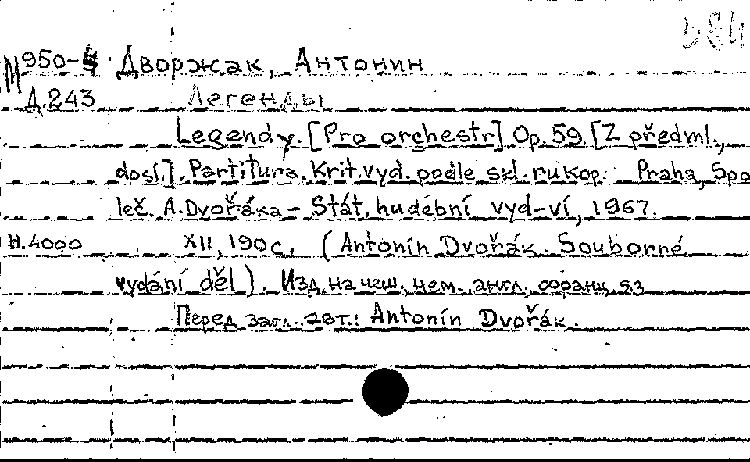 М950-4 Дворжак, Антонин
Д 243 Легенды
Legendy. [Pro orchestr] Op. 59. [Z předml.,
dosl.]. Partitura. Krit. vyd. podle skl. rukop. Praha, Spo
leč. A. Dvořáka - Stát. hudební vyd-ví, 1967.
Н. 4000 XII, 190 с. (Antonín Dvořák. Souborné
vydání děl). Изд. на чеш., нем., англ., франц. яз
Перед загл. авт.: Antonín Dvořák.